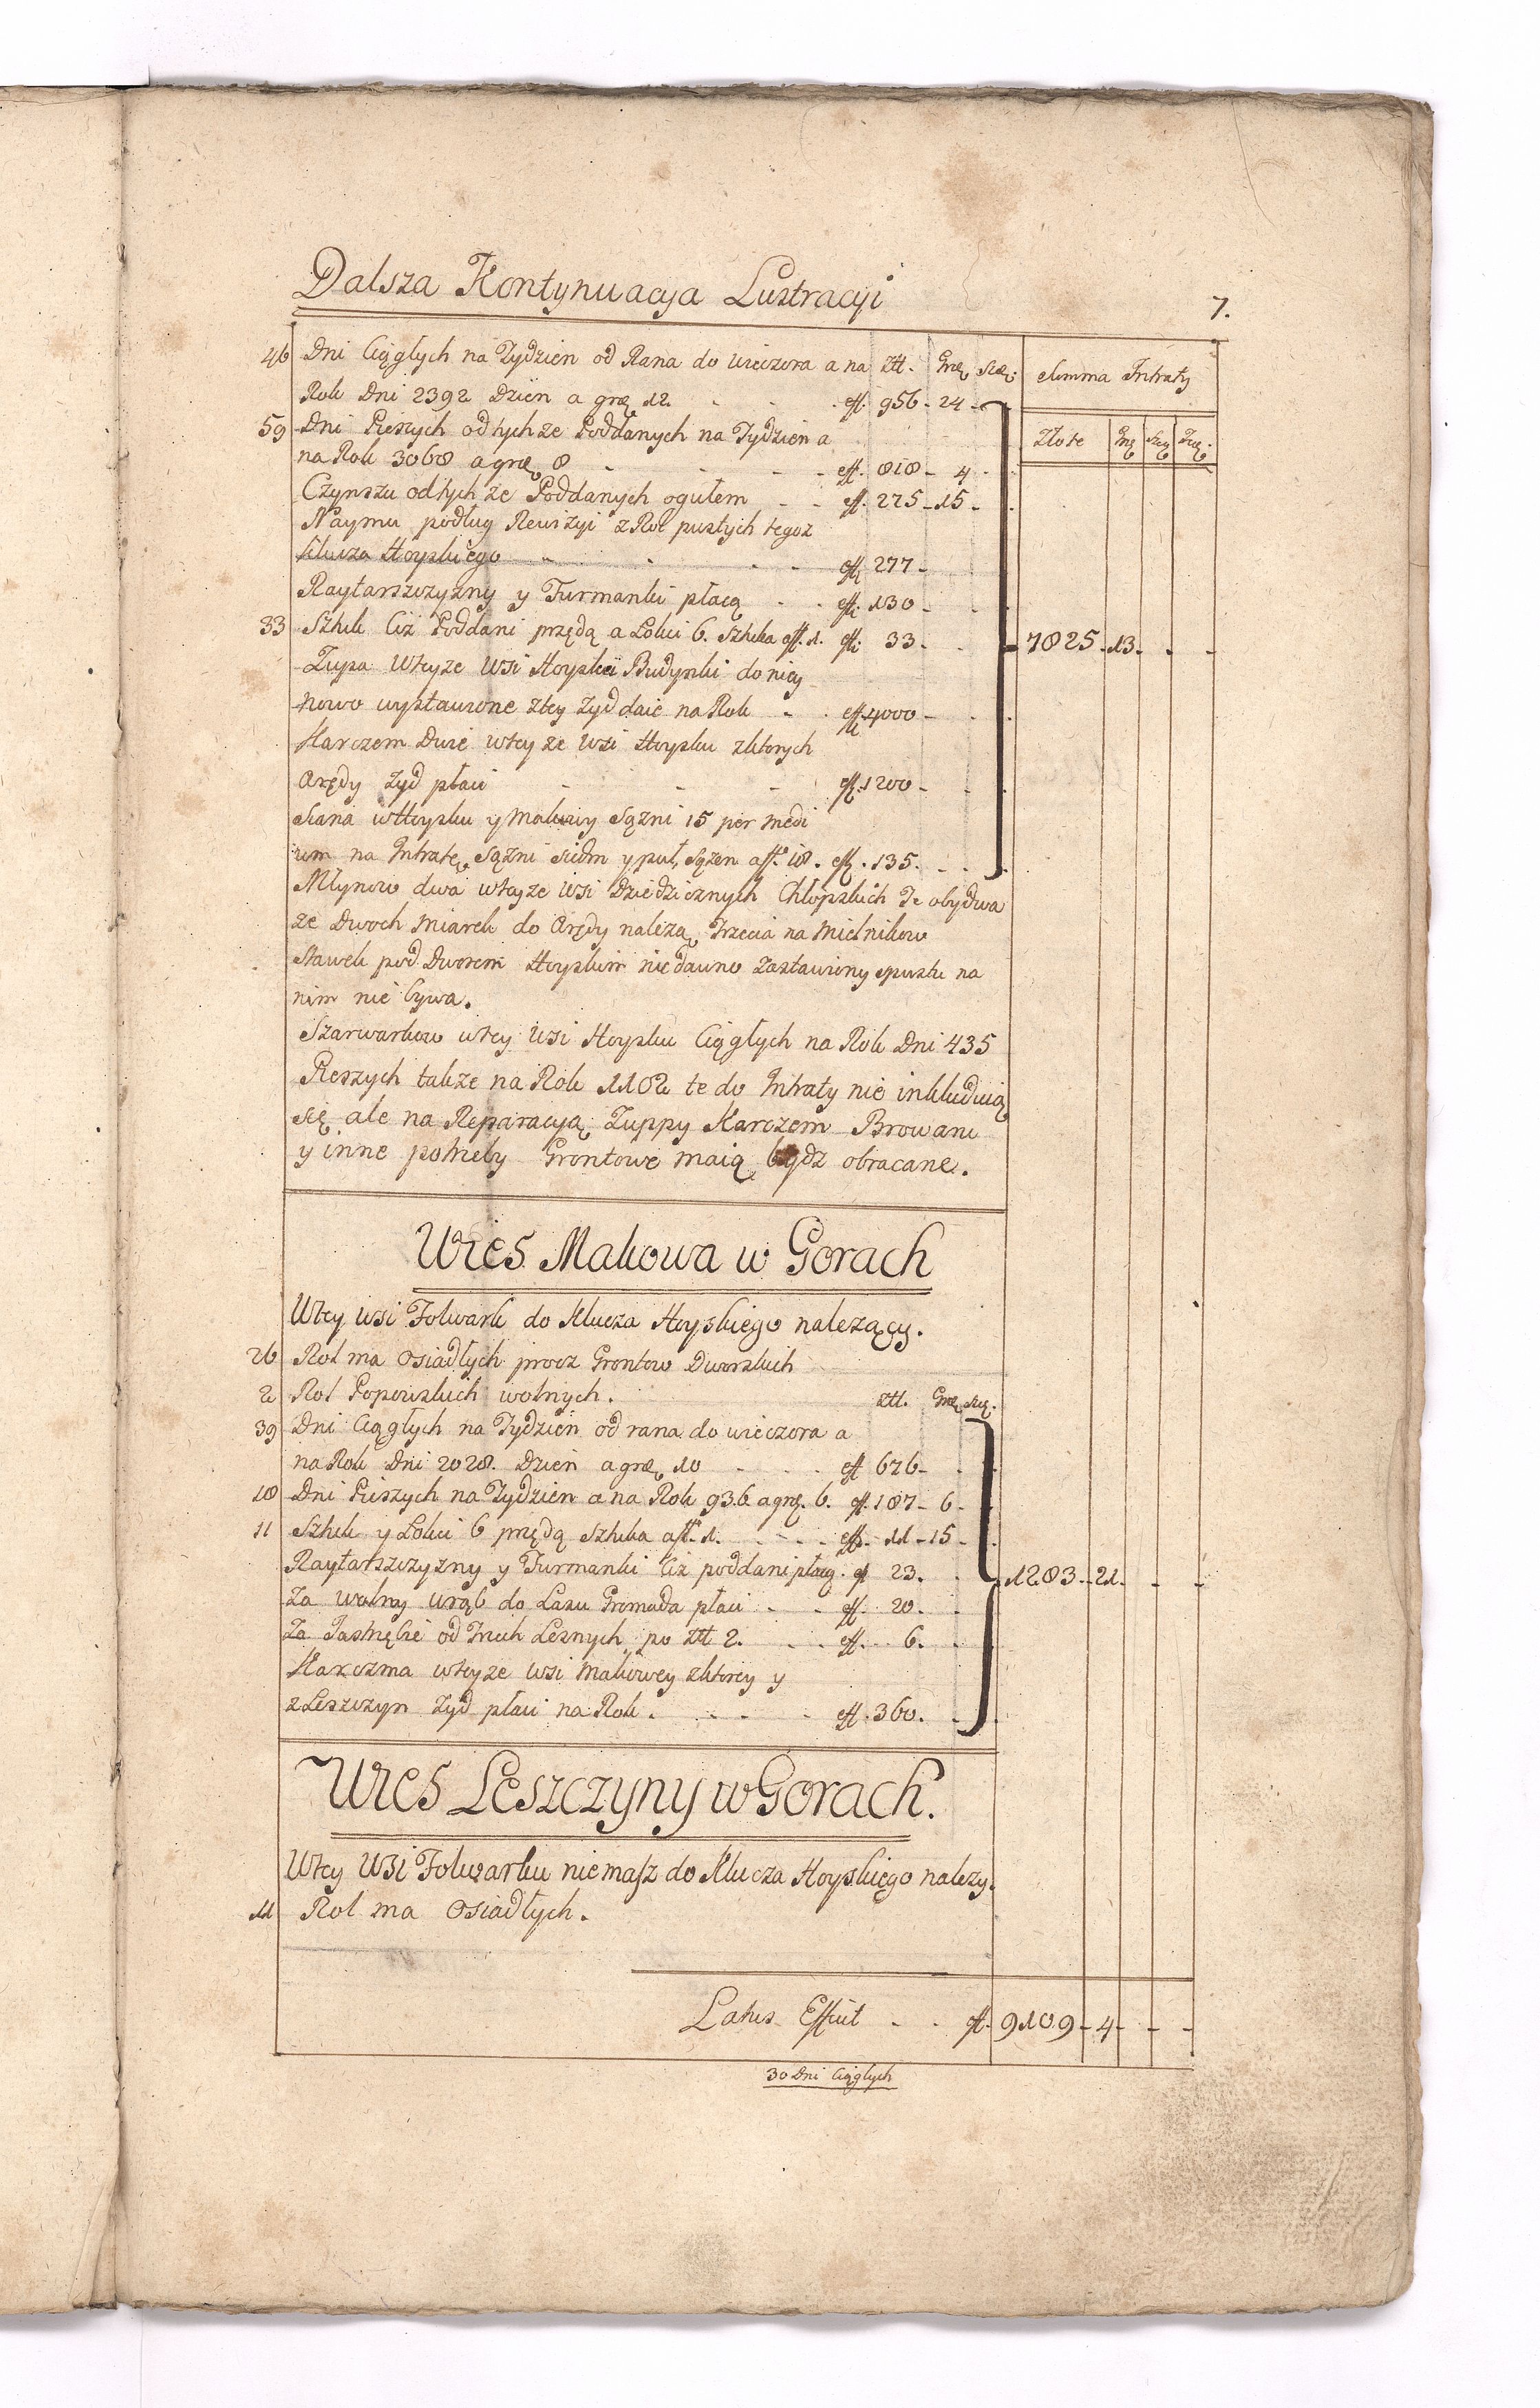 Dalsza Kontynuacya Lustracyi
7.
46 Dni Ciągłych na Tydzien od Rana do wieczora a na Ztł. Grę Szę.
Summa Intraty
Rok Dni 2392 Dzien a grę 12. - - - ff. 956 - 24 -
Złote Grę Szę
59 Dni Pieszych od tychze Poddanych na Tydzien a
na Rok 3068 a grę 8 - - - - ff. 818 - 4 -
Czynszu od tych ze Poddanych ogułem - - ff. 275 - 15 -
Naymu podług Rewizyi z Rol pustych tegoz
klucza Hoyskiego - - - - ff. 277 -
Raytarszczyzny y Furmanki płacą - - ff. 130 -
33 Sztuk Ciz Poddani przędą a Lokci 6. Sztuka a ff. 1. ff. 33 -
7825 - 13 - - -
Zupa wteyze wsi Hoysku Budynki do niey
nowo wystawione z tey Zyd daie na Rok - ff. 4000 -
Karczem Dwie wtey ze wsi Hoysku z ktorych
Arędy Zyd płaci - - - ff. 1200 -
Siana w Hoysku y Makowy Sązni 15 per medi
um na Intratę Sązni siedm y puł, Sązen a ff. 18. ff. 135.
Młynow dwa wteyze wsi Dziedzicznych Chłopskich Te obydwa
ze Dwoch Miarek do Arędy nalezą, Trzecia na Mielnikow
Stawek pod Dworem Hoyskim nie dawno Zastawiony spustu na
nim nie bywa.
Szarwarkow wtey wsi Hoysku Ciągłych na Rok Dni 435
Pieszych takze na Rok 1102 te do Intraty nie inkluduią
się ale na Reparacyą Zuppy Karczem Browaru
y inne potrzeby Grontowe maią bydz obracane.
Wies Makowa w Gorach
Wtey wsi Folwark do Klucza Hoyskiego nalezący.
26 Rol ma Osiadłych procz Grontow Dworskich
2 Rol Popowskich wolnych. Ztł. Grę Szę.
39 Dni Ciągłych na Tydzien od rana do wieczora a
na Rok Dni 2028. Dzien a grę 10 - - - ff 676 -
18 Dni Pieszych na Tydzien a na Rok 936 a grę. 6. ff. 187 - 6 -
11 Sztuk y Lokci 6 przędą Sztuka a ff. 1. - - - ff. 11 - 15 -
Raytarszczyzny y Furmanki Ciz poddani płacą. ff 23. -
1283 - 21 - - -
Za wolny wrąb do Lasu Gromada płaci - - ff. 20. -
Za Jastrzębie od Trzech Lesnych po Ztł 2. - - ff. 6. -
Karczma wteyze wsi Makowey z ktorey y
z Leszczyn Zyd płaci na Rok. - - - ff. 360. -
Wies Leszczyny w Gorach.
Wtey Wsi Folwarku nie masz do Klucza Hoyskiego nalezy.
11 Rol ma Osiadłych.
Latus Efficit - - ff. 9109 - 4 - - -
30 Dni Ciągłych